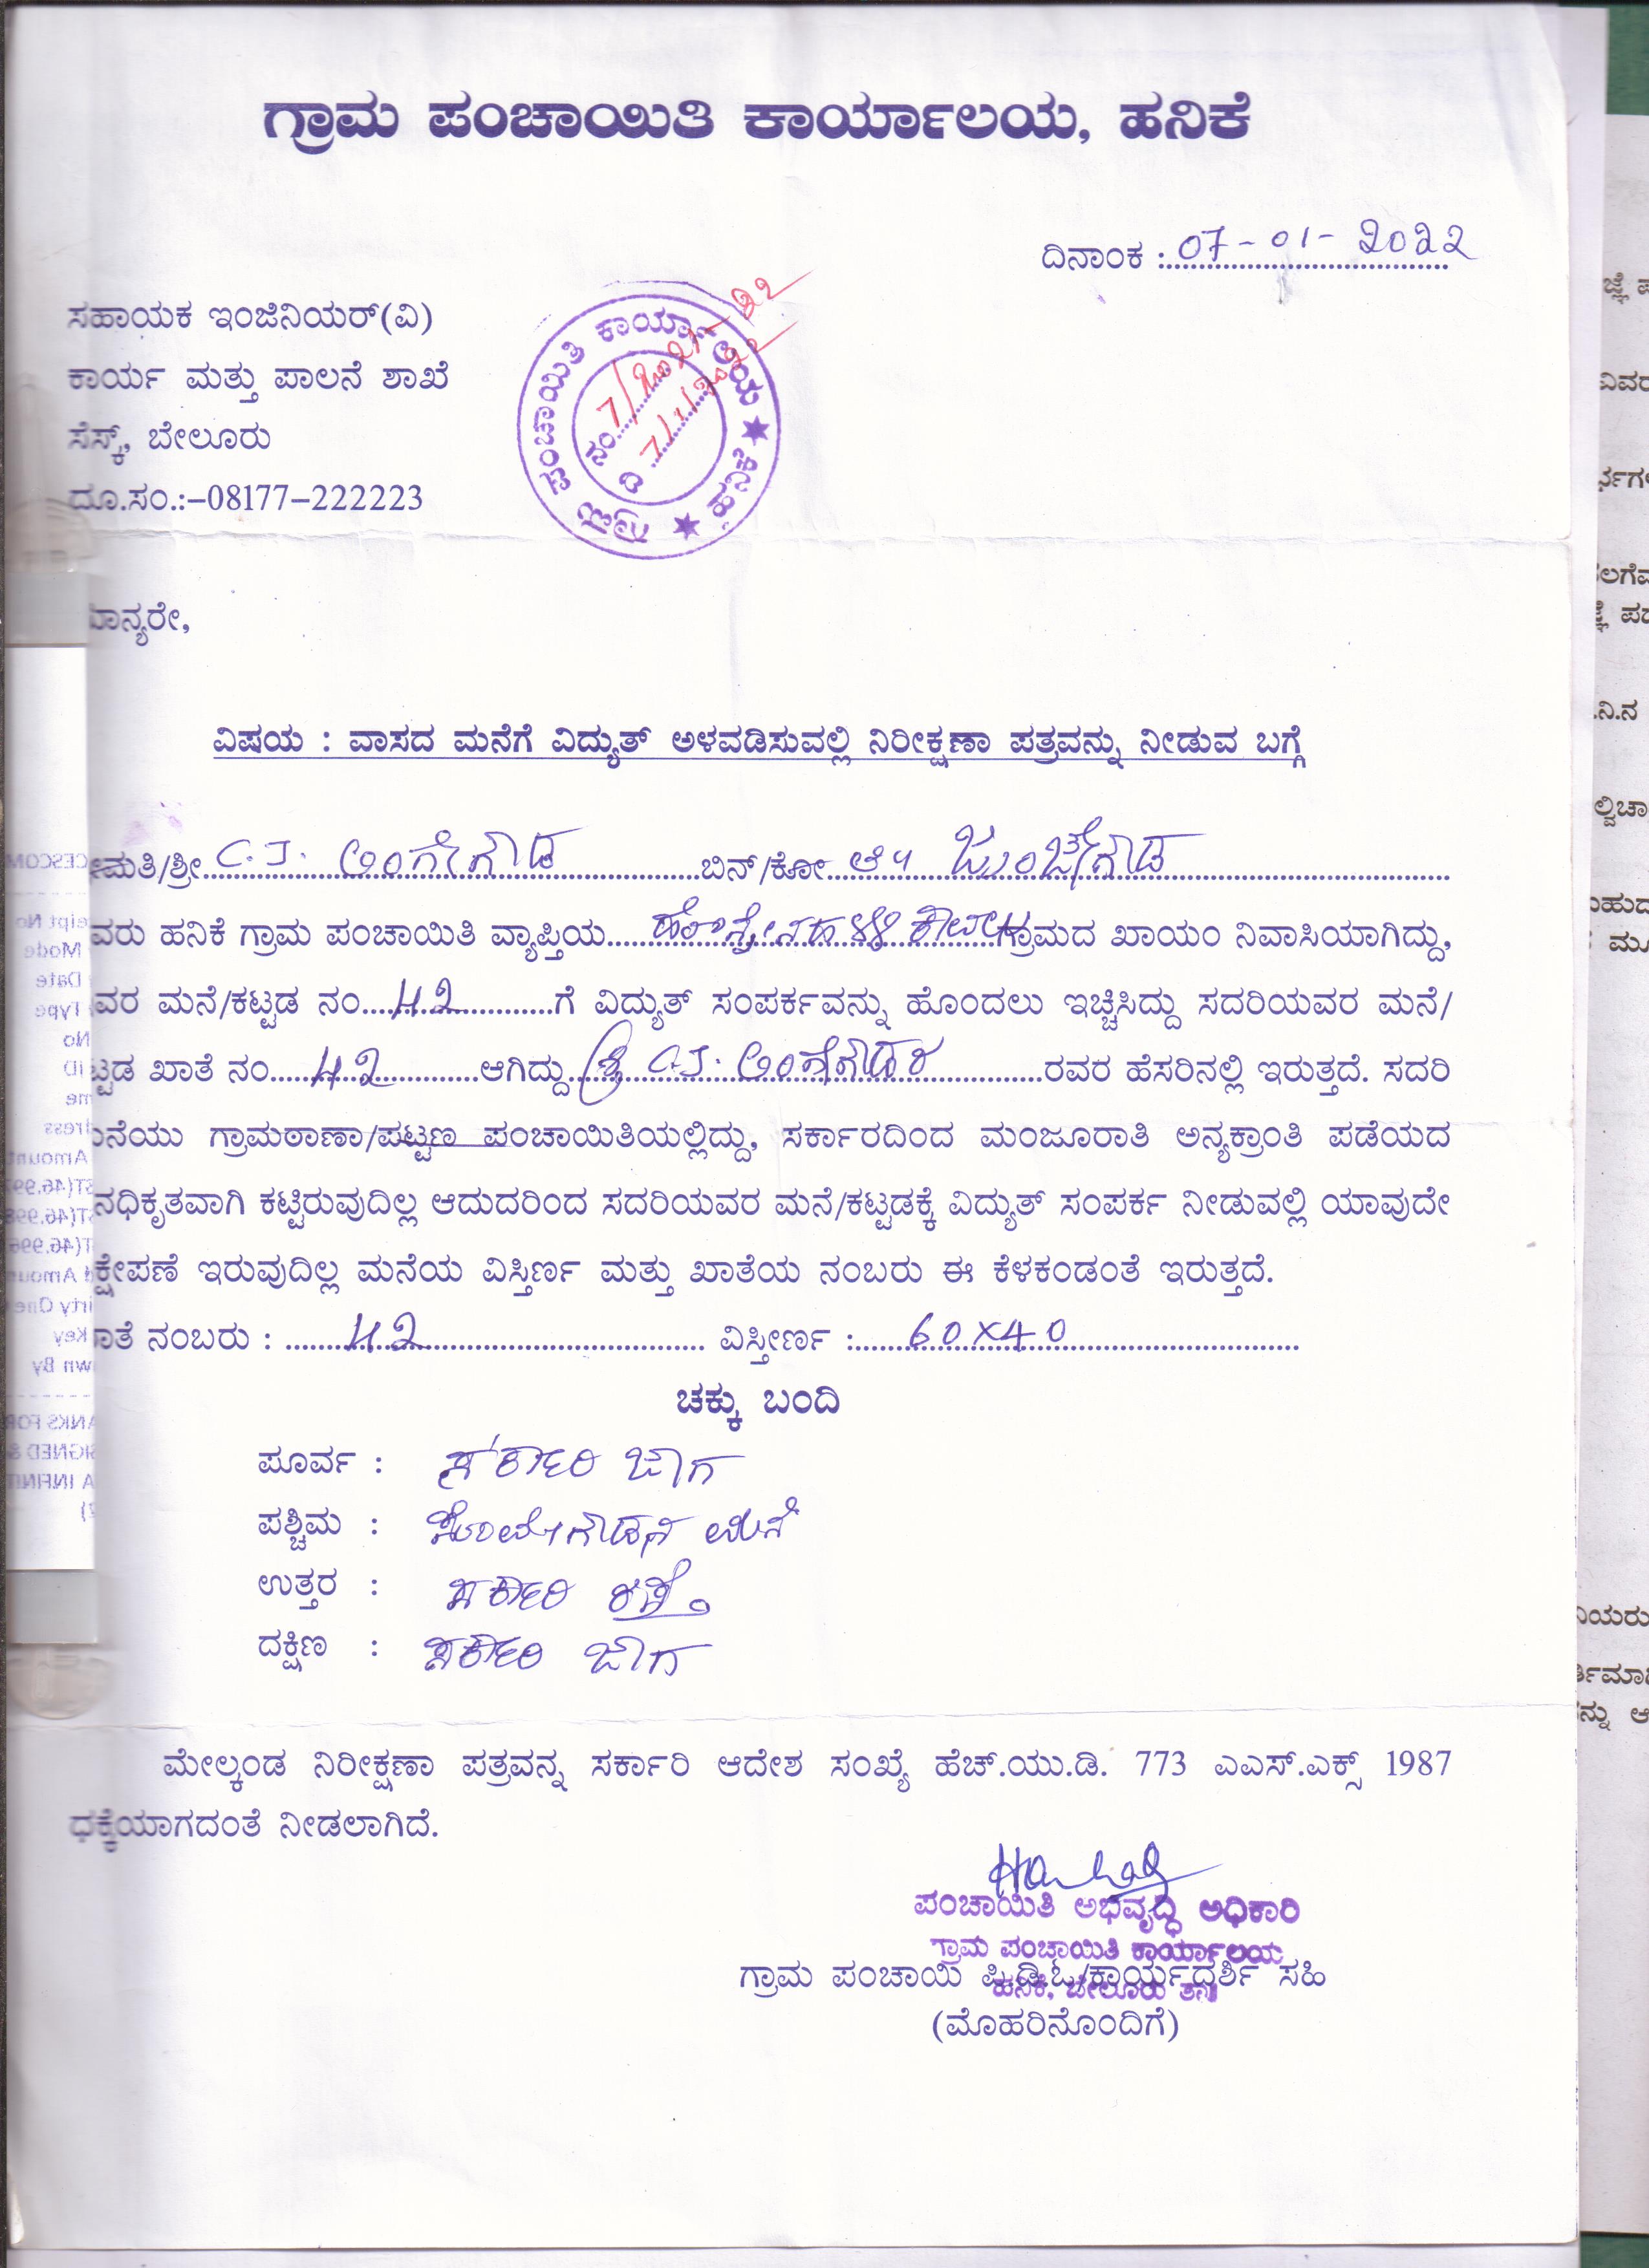 ಗ್ರಾಮ ಪಂಚಾಯಿತಿ ಕಾರ್ಯಾಲಯ, ಹನಿಕೆ
ದಿನಾಂಕ : 07-01-2022
ಸಹಾಯಕ ಇಂಜಿನಿಯರ್(ವಿ)
ಕಾರ್ಯ ಮತ್ತು ಪಾಲನೆ ಶಾಖೆ
ಸೆಸ್ಕ್, ಬೇಲೂರು
ದೂ.ಸಂ.:–08177–222223
ಗ್ರಾಮ ಪಂಚಾಯಿತಿ ಕಾರ್ಯಾಲಯ ★ ಹನಿಕೆ ★
ನಂ 7/2021-22
ದಿ 7/1/2022
ಮಾನ್ಯರೇ,
ವಿಷಯ : ವಾಸದ ಮನೆಗೆ ವಿದ್ಯುತ್ ಅಳವಡಿಸುವಲ್ಲಿ ನಿರೀಕ್ಷಣಾ ಪತ್ರವನ್ನು ನೀಡುವ ಬಗ್ಗೆ
ೀಮತಿ/ಶ್ರೀ C.J. ಅಂಗೇಗೌಡ ಬಿನ್/ಕೋ ಜುಂಜೇಗೌಡ
ವರು ಹನಿಕೆ ಗ್ರಾಮ ಪಂಚಾಯಿತಿ ವ್ಯಾಪ್ತಿಯ ಗ್ರಾಮದ ಖಾಯಂ ನಿವಾಸಿಯಾಗಿದ್ದು,
ವರ ಮನೆ/ಕಟ್ಟಡ ನಂ 42 ಗೆ ವಿದ್ಯುತ್ ಸಂಪರ್ಕವನ್ನು ಹೊಂದಲು ಇಚ್ಚಿಸಿದ್ದು ಸದರಿಯವರ ಮನೆ/
ಟ್ಟಡ ಖಾತೆ ನಂ 42 ಆಗಿದ್ದು ಶ್ರೀ C.J. ಅಂಗೇಗೌಡರ ರವರ ಹೆಸರಿನಲ್ಲಿ ಇರುತ್ತದೆ. ಸದರಿ
ನೆಯು ಗ್ರಾಮಠಾಣಾ/ಪಟ್ಟಣ ಪಂಚಾಯಿತಿಯಲ್ಲಿದ್ದು, ಸರ್ಕಾರದಿಂದ ಮಂಜೂರಾತಿ ಅನ್ಯಕ್ರಾಂತಿ ಪಡೆಯದ
ನಧಿಕೃತವಾಗಿ ಕಟ್ಟಿರುವುದಿಲ್ಲ ಆದುದರಿಂದ ಸದರಿಯವರ ಮನೆ/ಕಟ್ಟಡಕ್ಕೆ ವಿದ್ಯುತ್ ಸಂಪರ್ಕ ನೀಡುವಲ್ಲಿ ಯಾವುದೇ
ಕ್ಷೇಪಣೆ ಇರುವುದಿಲ್ಲ ಮನೆಯ ವಿಸ್ತೀರ್ಣ ಮತ್ತು ಖಾತೆಯ ನಂಬರು ಈ ಕೆಳಕಂಡಂತೆ ಇರುತ್ತದೆ.
ಾತೆ ನಂಬರು : 42 ವಿಸ್ತೀರ್ಣ : 60X40
ಚಕ್ಕು ಬಂದಿ
ಪೂರ್ವ : ಸರ್ಕಾರಿ ಜಾಗ
ಪಶ್ಚಿಮ : ಸೋಮೇಗೌಡನ ಮನೆ
ಉತ್ತರ : ಸರ್ಕಾರಿ ರಸ್ತೆ
ದಕ್ಷಿಣ : ಸರ್ಕಾರಿ ಜಾಗ
ಮೇಲ್ಕಂಡ ನಿರೀಕ್ಷಣಾ ಪತ್ರವನ್ನ ಸರ್ಕಾರಿ ಆದೇಶ ಸಂಖ್ಯೆ ಹೆಚ್.ಯು.ಡಿ. 773 ಎಎಸ್.ಎಕ್ಸ್ 1987
ಧಕ್ಕೆಯಾಗದಂತೆ ನೀಡಲಾಗಿದೆ.
ಪಂಚಾಯಿತಿ ಅಭಿವೃದ್ಧಿ ಅಧಿಕಾರಿ
ಗ್ರಾಮ ಪಂಚಾಯಿತಿ ಕಾರ್ಯಾಲಯ
ಹನಿಕೆ, ಬೇಲೂರು ತಾ॥
ಗ್ರಾಮ ಪಂಚಾಯಿ ಪಿ.ಡಿ.ಓ/ಕಾರ್ಯದರ್ಶಿ ಸಹಿ
(ಮೊಹರಿನೊಂದಿಗೆ)